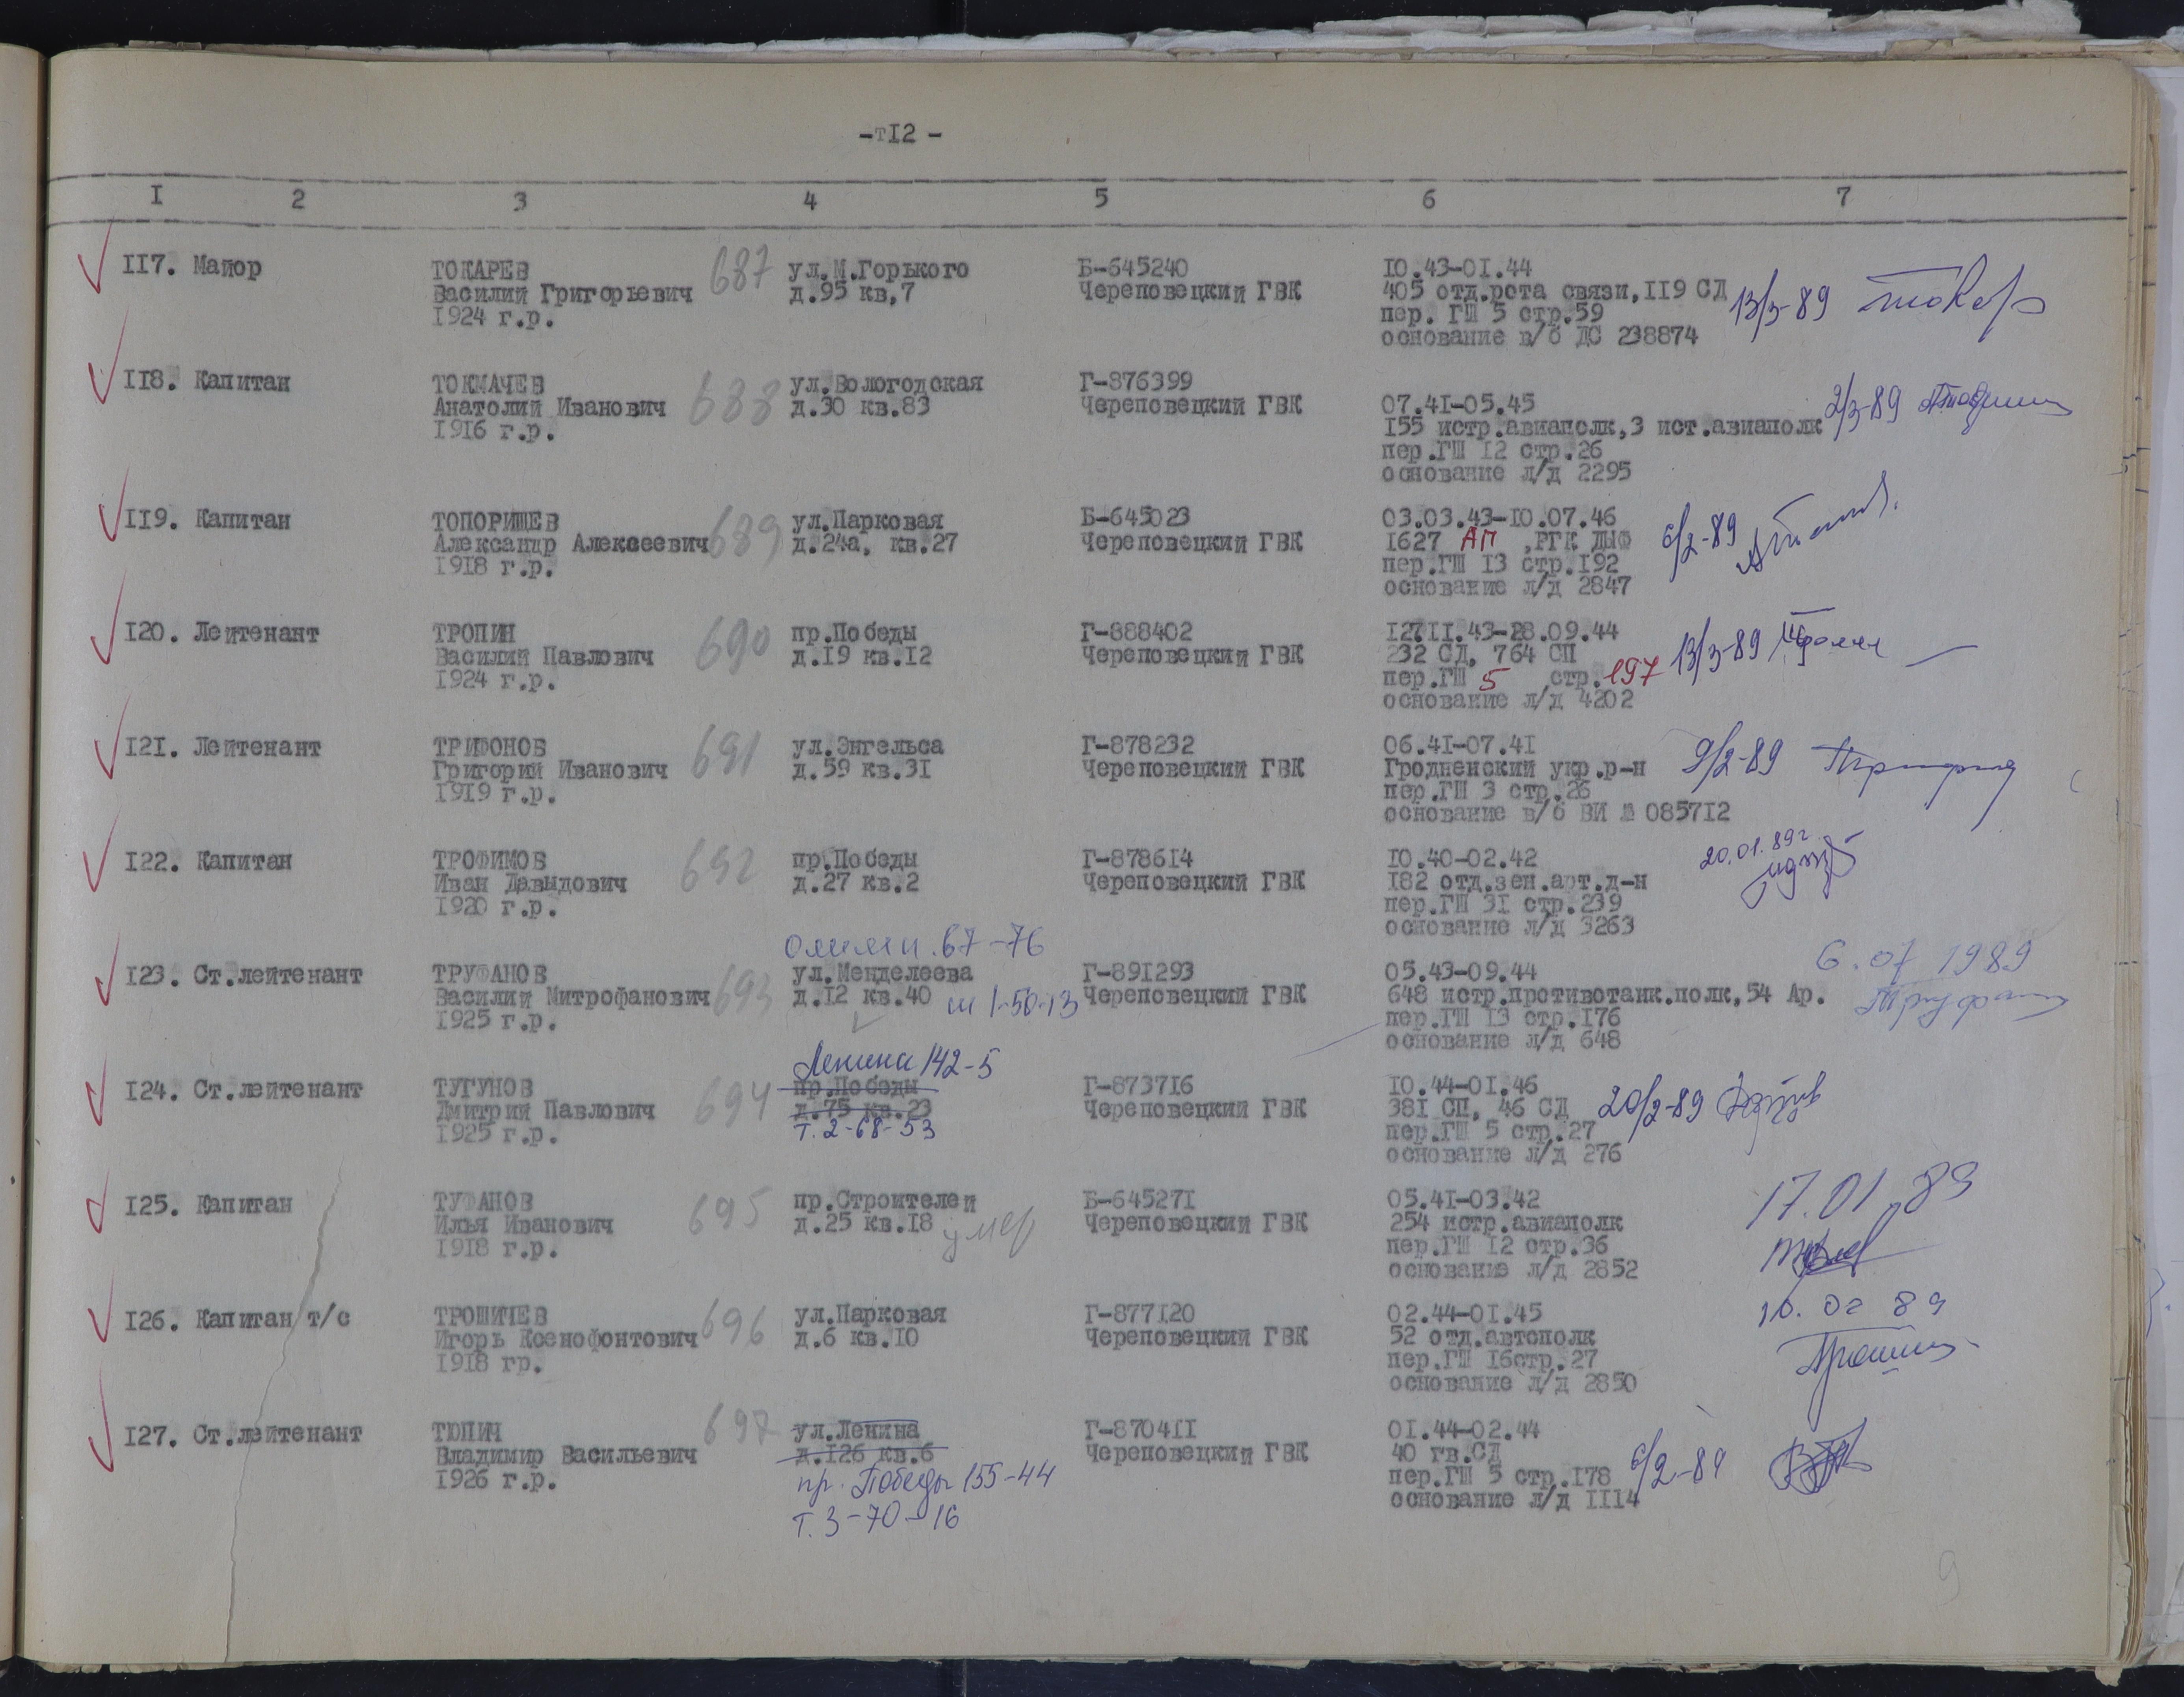 -т12 -
1 2 3 4 5 6 7
117. Майор ТОКАРЕВ 687 ул.М.Горького Б-645240 10.43-01.44
Василий Григорьевич д.95 кв,7 Череповецкий ГВК 405 отд.рота связи,119 СД 13/3-89
1924 г.р. пер. ГШ 5 стр.59
основание в/б ДС 238874
118. Капитан ТОКМАЧЕВ 688 ул.Вологодская Г-876399
Анатолий Иванович д.30 кв.83 Череповецкий ГВК 07.41-05.45 2/3-89
1916 г.р. 155 истр.авиаполк,3 ист.авиаполк
пер.ГШ 12 стр.26
основание л/д 2295
119. Капитан ТОПОРИЩЕВ 689 ул.Парковая Б-645023 03.03.43-10.07.46
Александр Алексеевич д.24а, кв.27 Череповецкий ГВК 1627 АП ,РГК ДЫФ 6/2-89
1918 г.р. пер.ГШ 13 стр.192
основание л/д 2847
120. Лейтенант ТРОПИН 690 пр.Победы Г-888402 12711.43-28.09.44
Василий Павлович д.19 кв.12 Череповецкий ГВК 232 СД, 764 СП 13/3-89
1924 г.р. пер.ГШ 5 стр.197
основание л/д 4202
121. Лейтенант ТРИФОНОВ 691 ул.Энгельса Г-878232 06.41-07.41
Григорий Иванович д.59 кв.31 Череповецкий ГВК Гродненский укр.р-н 9/2-89
1919 г.р. пер.ГШ 3 стр.26
основание в/б ВИ № 085712
122. Капитан ТРОФИМОВ 692 пр.Победы Г-878614 10.40-02.42 20.01.89г
Иван Давыдович д.27 кв.2 Череповецкий ГВК 182 отд.зен.арт.д-н
1920 г.р. пер.ГШ 31 стр.239
основание л/д 3263
67-76
123. Ст.лейтенант ТРУФАНОВ 693 ул.Менделеева Г-891293 05.43-09.44 6.07 1989
Василий Митрофанович д.12 кв.40 1-50-13 Череповецкий ГВК 648 истр.противотанк.полк,54 Ар.
1925 г.р. пер.ГШ 13 стр.176
основание л/д 648
Ленина 142-5
124. Ст.лейтенант ТУГУНОВ 694 пр.Победы Г-873716 10.44-01.46
Дмитрий Павлович д.75 кв.23 Череповецкий ГВК 381 СП, 46 СД 20/2-89
1925 г.р. Т. 2-68-53 пер.ГШ 5 стр.27
основание л/д 276
125. Капитан ТУФАНОВ 695 пр.Строителей Б-645271 05.41-03.42 17.01.89
Илья Иванович д.25 кв.18 умер Череповецкий ГВК 254 истр.авиаполк
1918 г.р. пер.ГШ 12 стр.36
основание л/д 2852
126. Капитан т/с ТРОШИЧЕВ 696 ул.Парковая Г-877120 02.44-01.45 10. 02 89
Игорь Ксенофонтович д.6 кв.10 Череповецкий ГВК 52 отд.автополк
1918 гр. пер.ГШ 16стр.27
основание л/д 2850
127. Ст.лейтенант ТЮПИЧ 697 ул.Ленина Г-870411 01.44-02.44
Владимир Васильевич д.126 кв.6 Череповецкий ГВК 40 гв.СД
1926 г.р. пр. Победы 155-44 пер.ГШ 5 стр.178 6/2-89
Т. 3-70-16 основание л/д 1114
9